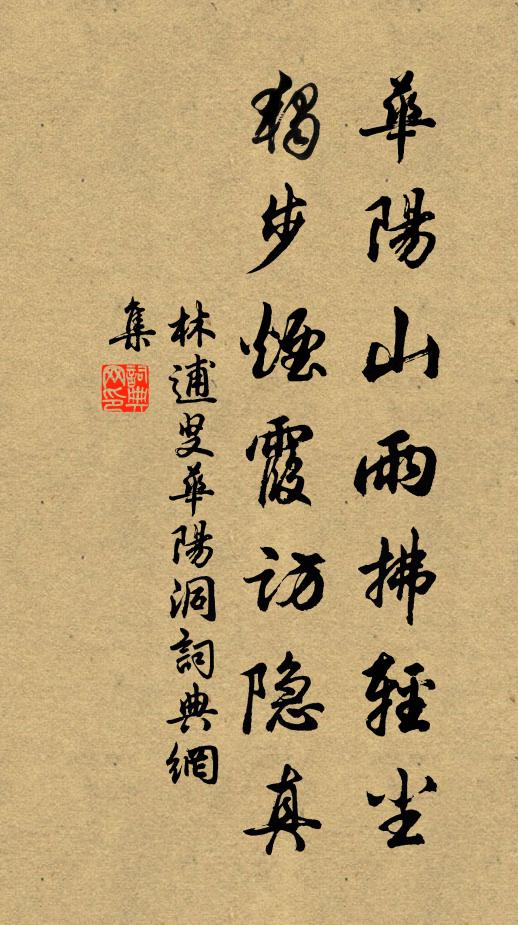 華陽山雨拂輕尘
獨步煙霞访隐真
林逋叟華陽洞詞典網
集
詞典
网印